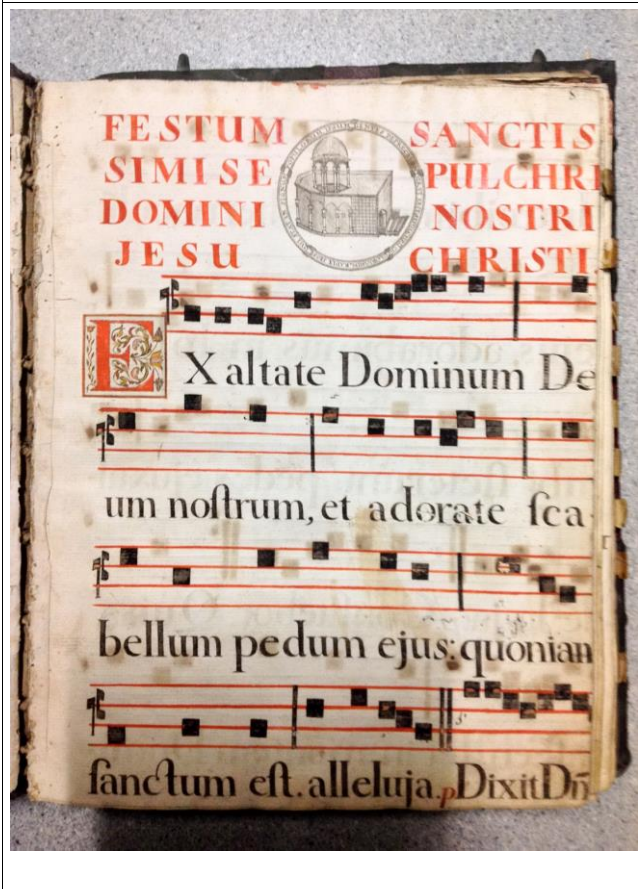 FESTUM SANCTIS
SIMI SE PULCHRI
DOMINI NOSTRI
JESU CHRISTI
EXaltate Dominum De
um noſtrum, et adorate ſca
bellum pedum ejus: quonian
ſanctum eſt. alleluja. p Dixit Dn̄